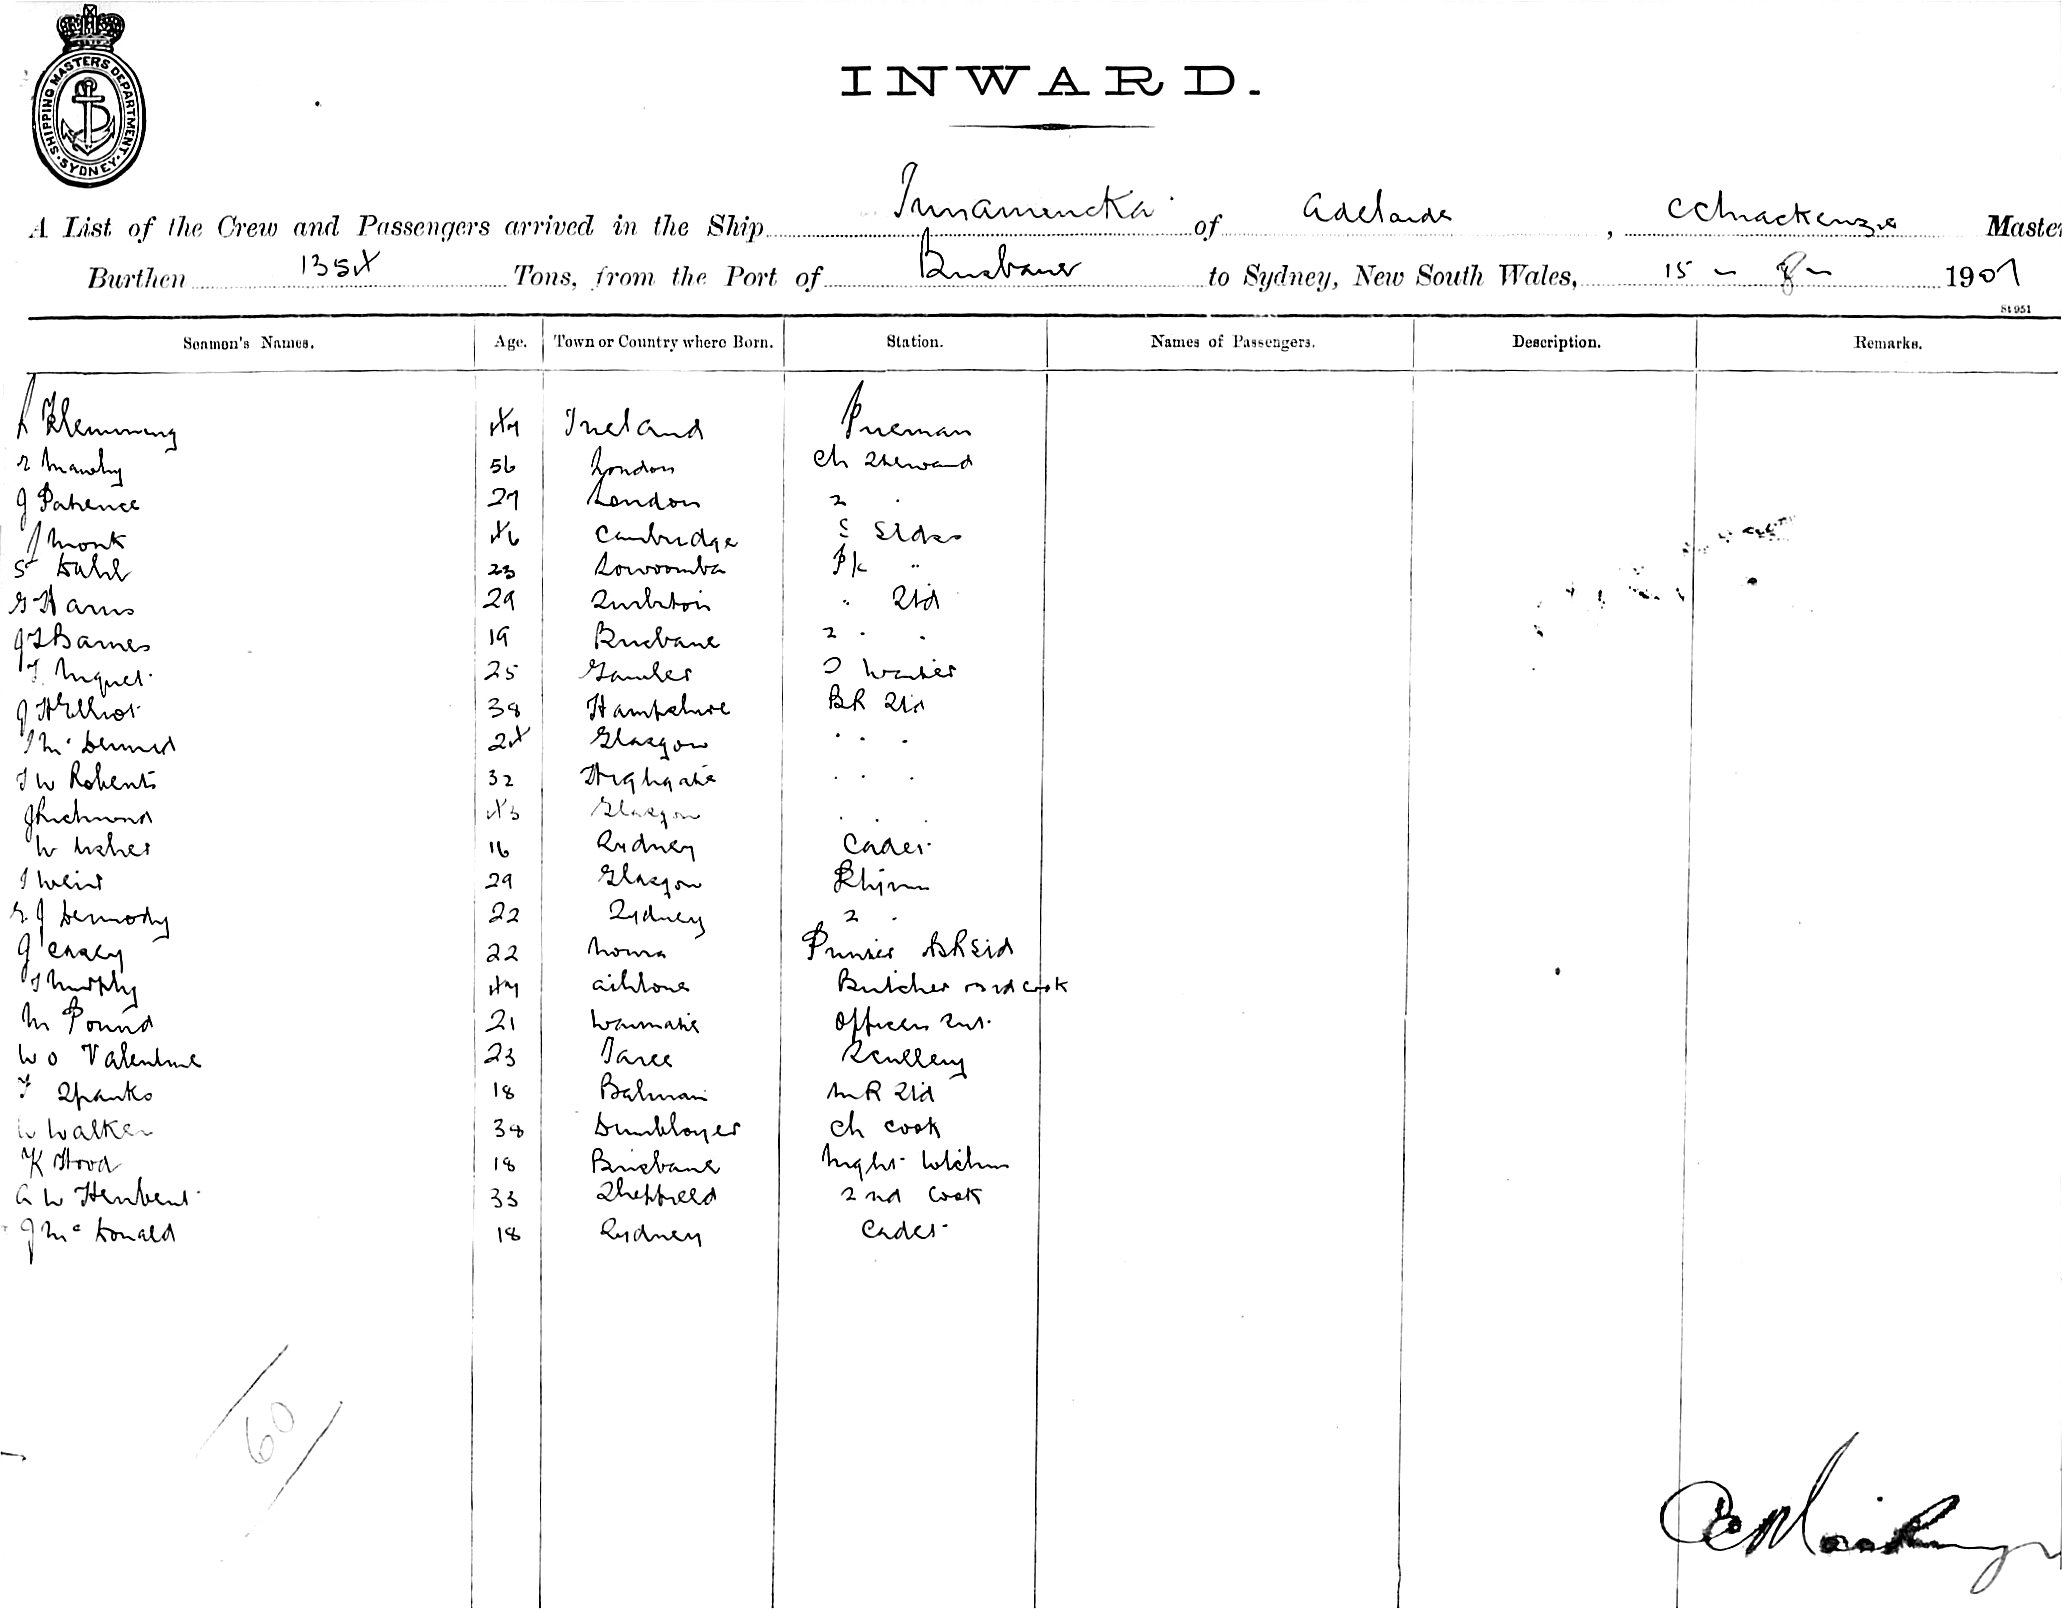 SHIPPING MASTERS DEPARTMENT · SYDNEY ·
INWARD.
A List of the Crew and Passengers arrived in the Ship Innamincka of Adelaide, C C Mackenzie Master
Burthen 1354 Tons, from the Port of Brisbane to Sydney, New South Wales, 15 - 8 - 1907
St 951
Seamen's Names. Age. Town or Country where Born. Station. Names of Passengers. Description. Remarks.
Flemming 47 Ireland Fireman
Mawby 56 London Ch Steward
J Patience 27 London 2 "
J Monk 46 Cambridge Stdss
S Dahl 23 Towoomba "
G Harris 29 " Std
J Barnes 19 Brisbane 2 " "
25 Gawler Waiter
J H Elliot 38 Hampshire BR Std
J McDermid 24 Glasgow " " "
T W Roberts 32 Highgate " " "
J Richmond 43 Glasgow " " "
W Usher 16 Sydney Cadet
J Weir 29 Glasgow
E J Dermody 22 Sydney 2 "
J Casey 22 Nowra
J Murphy 47 Butcher 3rd cook
M Pound 21 Waimate Officers Snt
W O Valentine 23 Taree Scullery
F Spanks 18 Balmain MR Std
W Walker 38 Ch cook
K Hood 18 Brisbane Night Wtchmn
A W Herbert 33 Sheffield 2nd cook
J McDonald 18 Sydney Cadet
60